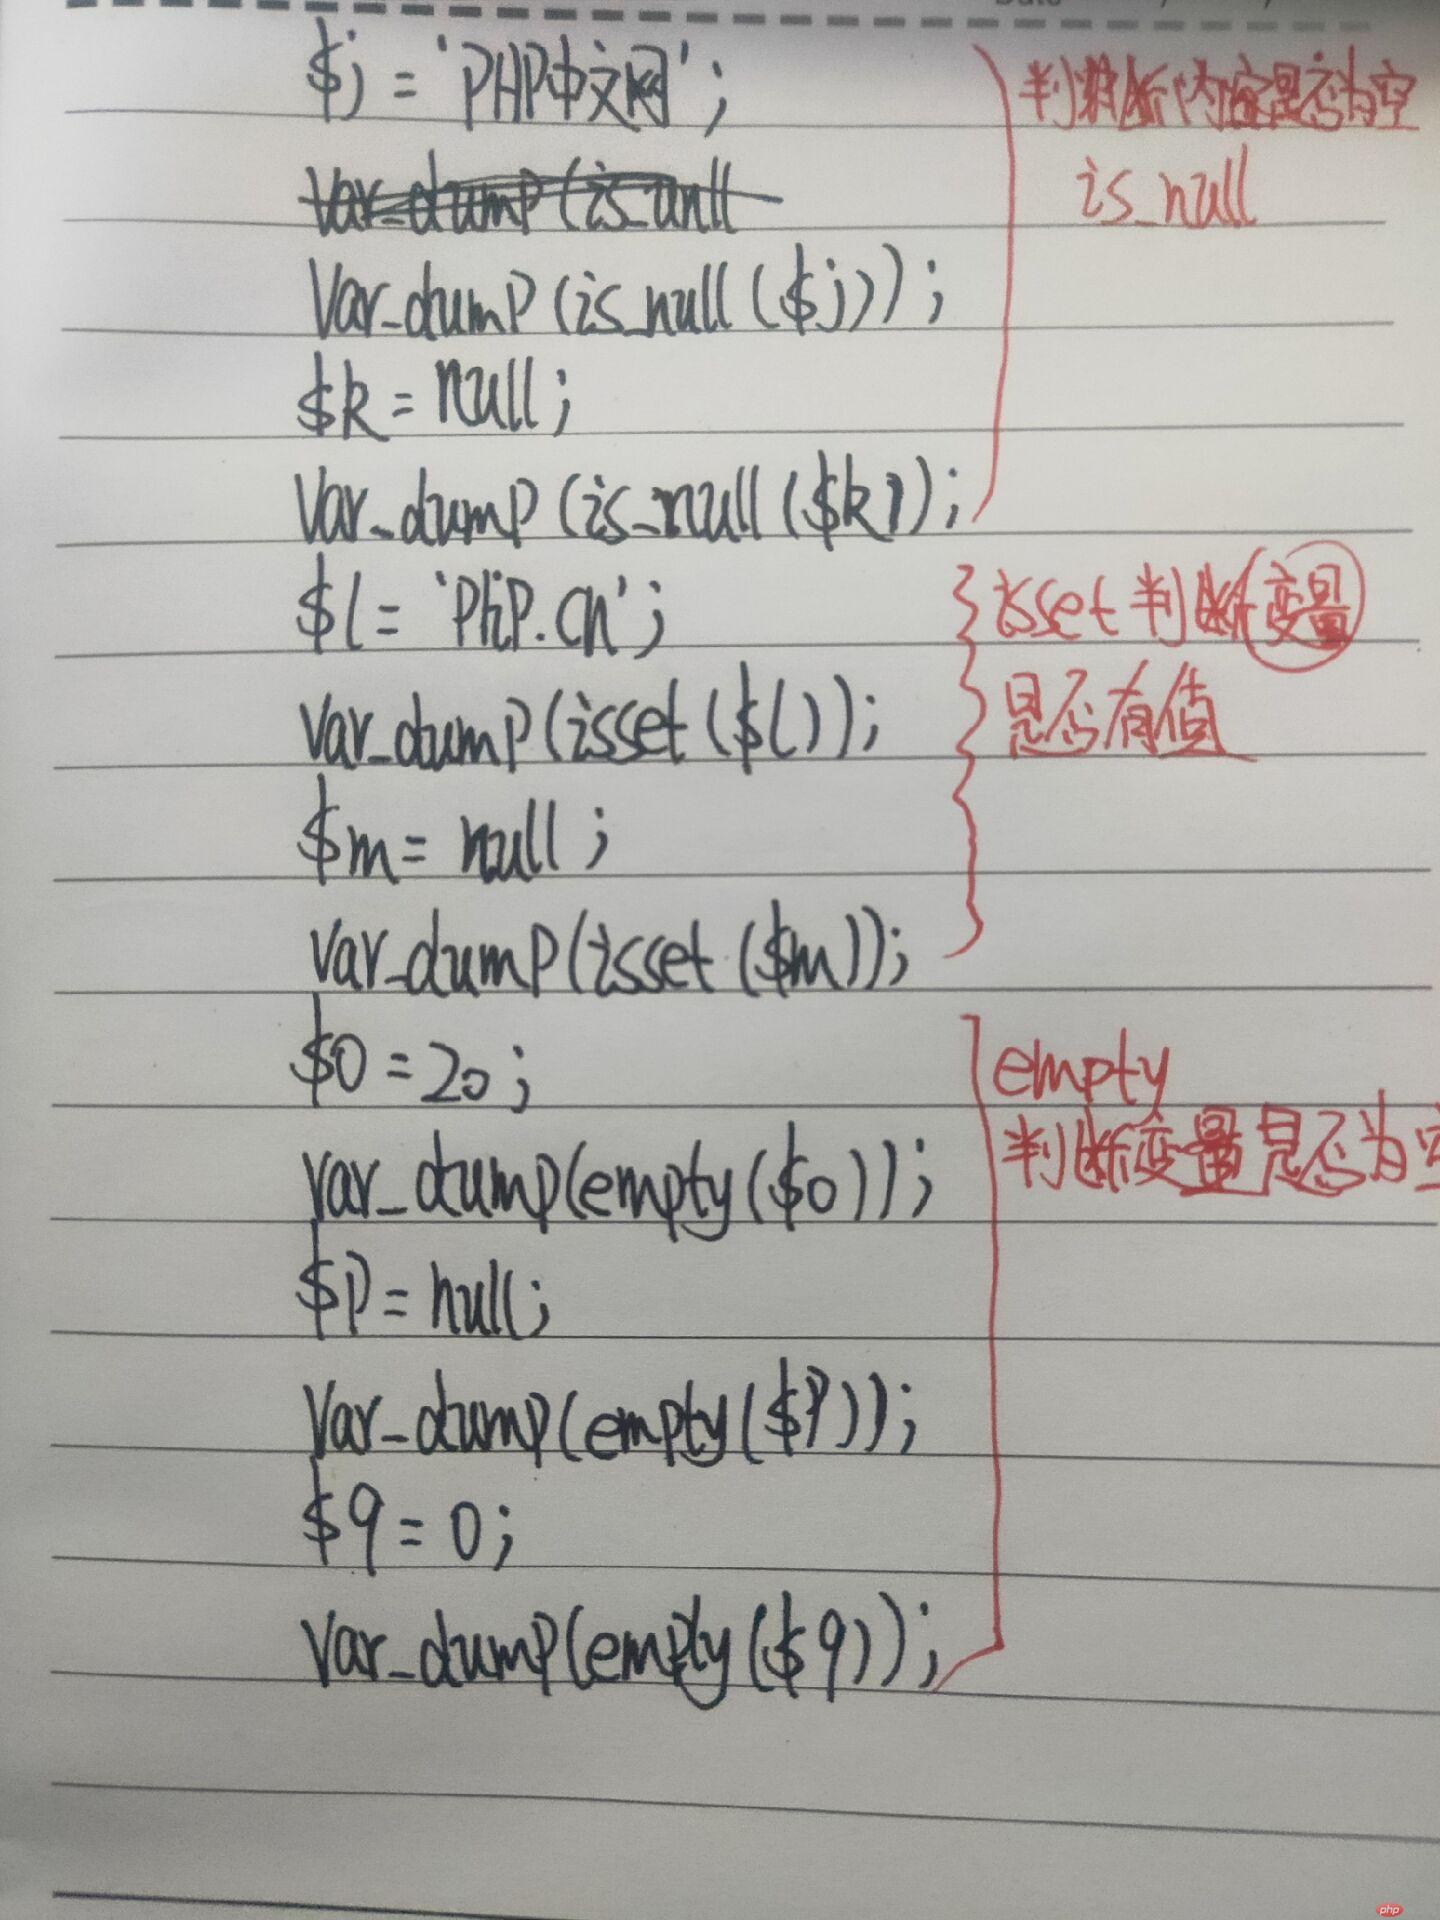 Date
$j = 'PHP中文网';
判断内容是否为空
is_null
var_dump(is_null
var_dump(is_null($j));
$k = null;
var_dump(is_null($k));
$l = 'PhP.cn';
isset判断变量
是否有值
var_dump(isset($l));
$m = null;
var_dump(isset($m));
$o = 20;
empty
判断变量是否为空
var_dump(empty($o));
$p = null;
var_dump(empty($p));
$q = 0;
var_dump(empty($q));
php